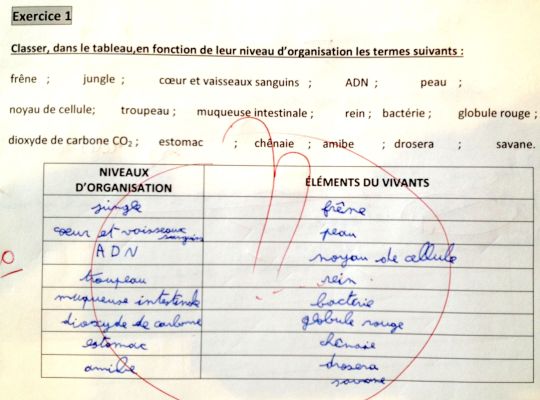 Exercice 1
Classer, dans le tableau,en fonction de leur niveau d'organisation les termes suivants :
frêne ; jungle ; cœur et vaisseaux sanguins ; ADN ; peau ;
noyau de cellule; troupeau ; muqueuse intestinale ; rein ; bactérie ; globule rouge ;
dioxyde de carbone CO₂ ; estomac ; chênaie ; amibe ; drosera ; savane.
NIVEAUX D'ORGANISATION ÉLÉMENTS DU VIVANTS
jungle frêne
cœur et vaisseaux sanguins peau
ADN noyau de cellule
troupeau rein
muqueuse intestinale bacterie
dioxyde de carbone globule rouge
estomac chênaie
amibe drosera
savane
0